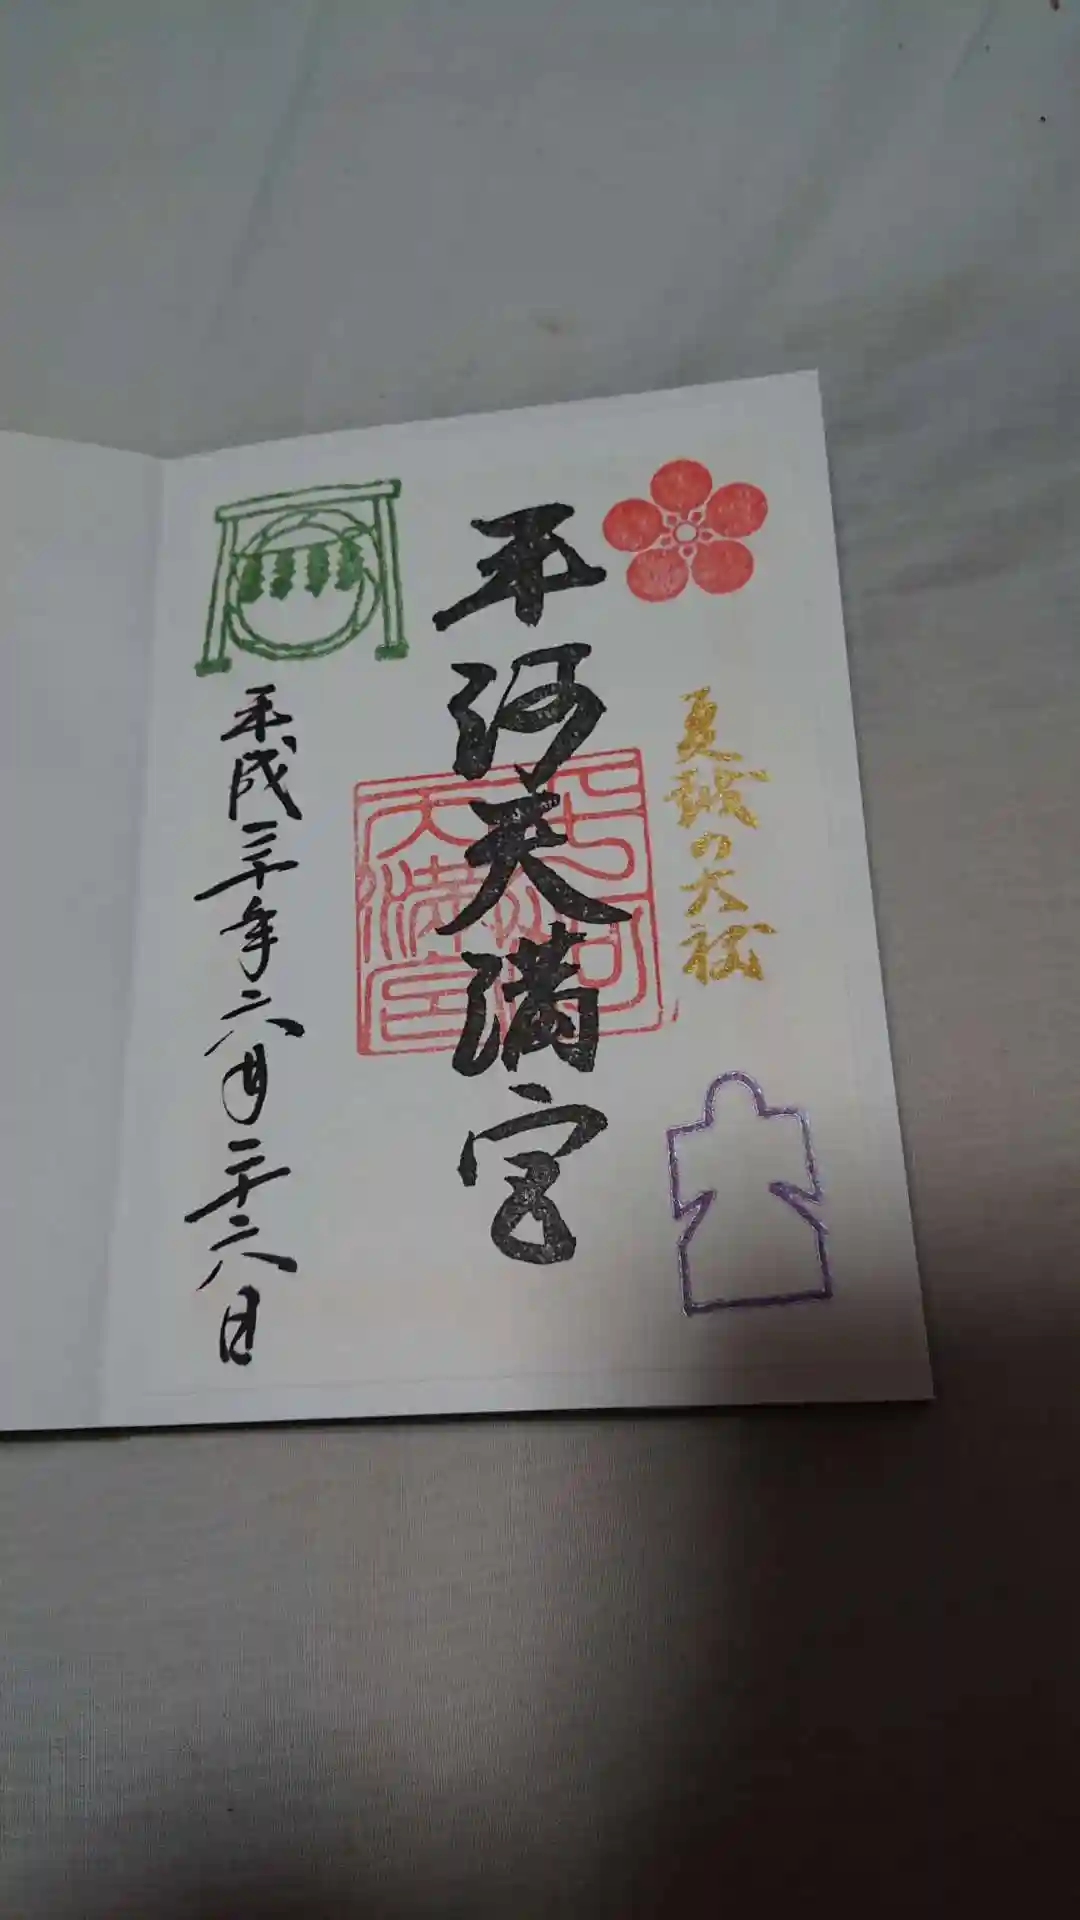 夏越の大祓
平河天満宮
平河天満宮
平成三十年六月二十六日